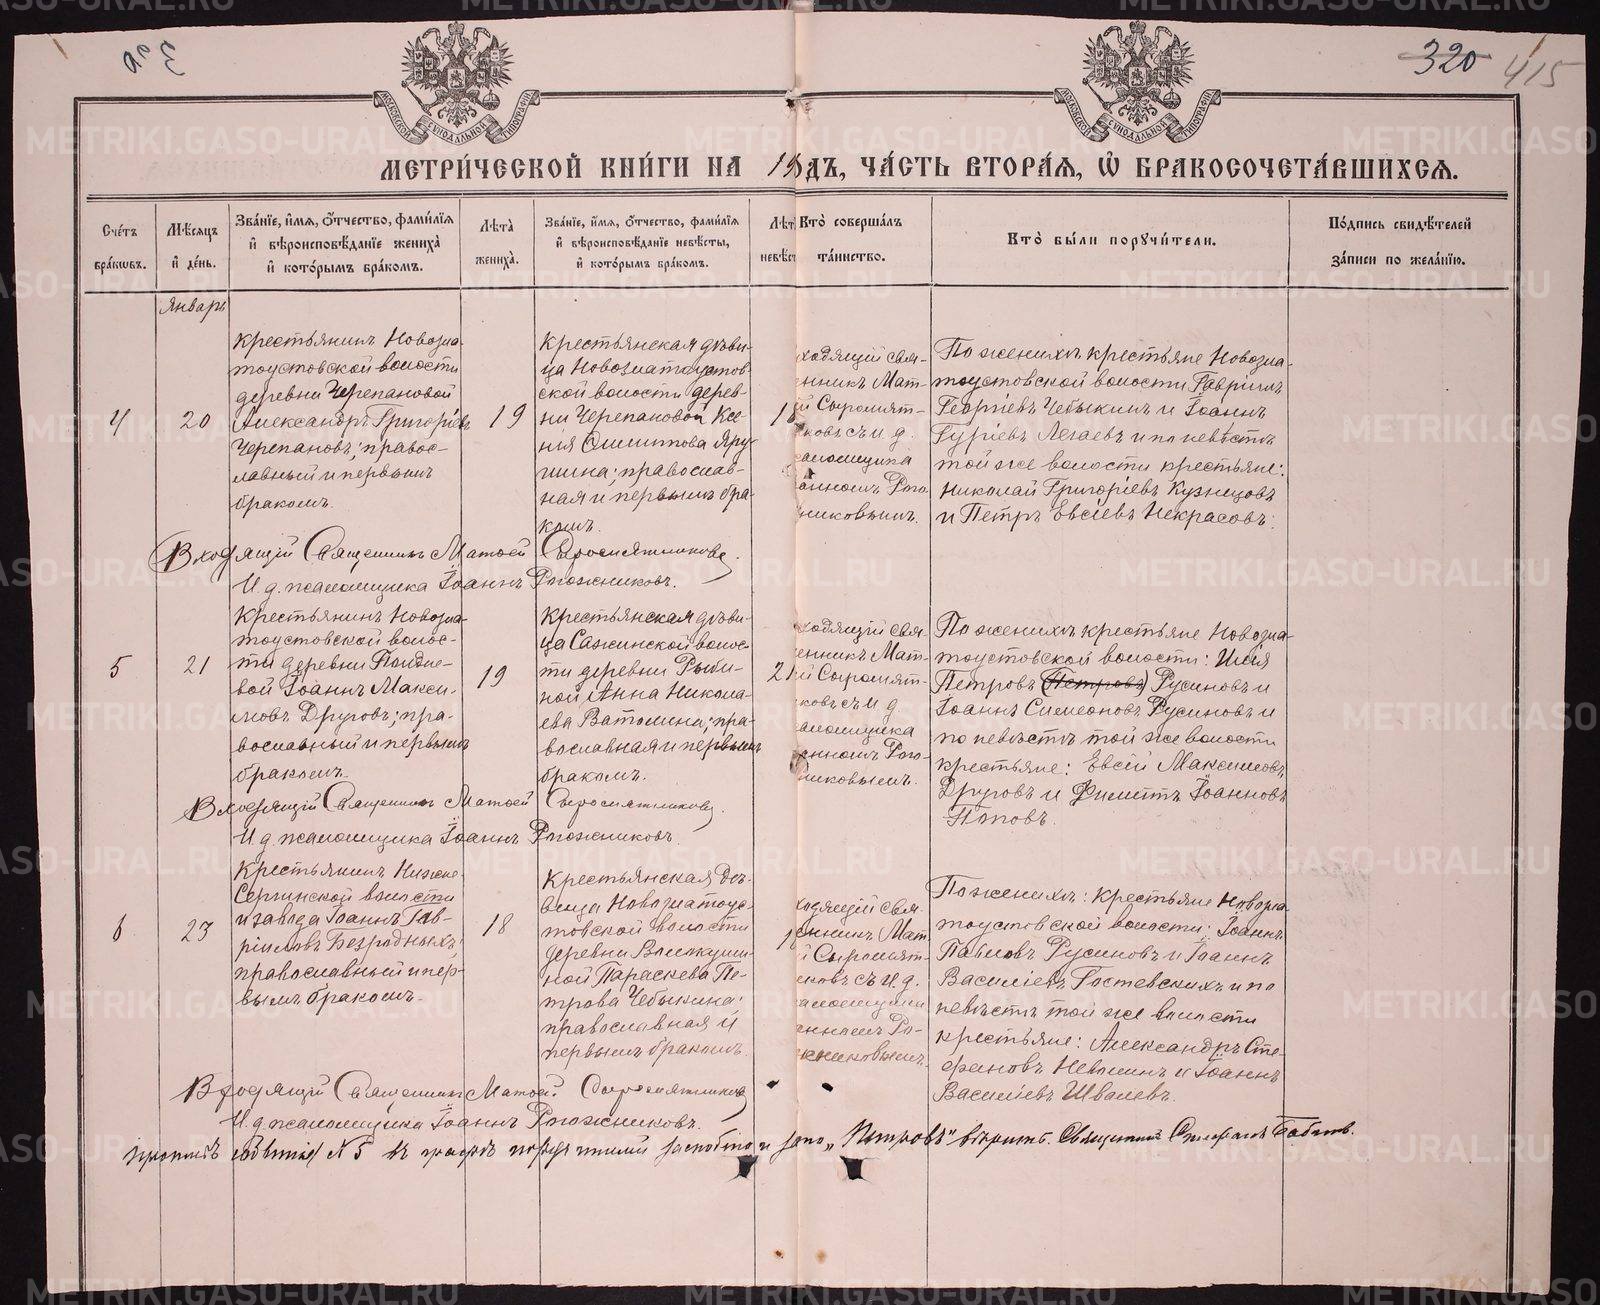 320
320 415
МОСКОВСКОЙ СѴНОДАЛЬНОЙ ТИПОГРАФІИ
МОСКОВСКОЙ СѴНОДАЛЬНОЙ ТИПОГРАФІИ
МЕТРИ́ЧЕСКОЙ КНИ́ГИ НА 19 ДЪ, ЧА́СТЬ ВТОРА́Я, Ѡ҆ БРАКОСОЧЕТА́ВШИХСЯ.
Сче́тъ бра́ковъ.
Мѣ́сяцъ и҆ де́нь.
Зва́нїе, и҆́мя, Ѻ҆́тчество, фами́лїя
и҆ вѣроисповѣ́данїе жениха̀
и҆ кото́рымъ бра́комъ.
Лѣ́та жениха̀.
Зва́нїе, и҆́мя, ѻ҆́тчество, фами́лїя
и҆ вѣроисповѣ́данїе невѣ́сты,
и҆ кото́рымъ бра́комъ.
Лѣт невѣс
Кто̀ соверша́лъ
та́инство.
Кто̀ бы́ли порꙋчи́тели.
По́дпись свидѣ́телей
за́писи по жела́нїю.
Январь
4
20
Крестьянинъ Новозла-
тоустовской волости
деревни Черепановой
Александръ Григоріевъ
Черепановъ; правос-
лавный и первымъ
бракомъ.
19
Крестьянская дѣви-
ца Новозлатоустов-
ской волости дерев-
ни Черепановой Ксе-
нія Филиппова Яру-
шина; православ-
ная и первымъ бра-
комъ.
1
ходящій свя-
енникъ Мат-
ей Сыромят-
ковъ съ и. д.
саломщика
анномъ Рого
никовымъ.
По женихѣ крестьяне Новозла-
тоустовской волости Гавріилъ
Георгіевъ Чебыкинъ и Іоаннъ
Гуріевъ Легаевъ и по невѣстѣ
той же волости крестьяне:
Николай Григоріевъ Кузнецовъ
и Петръ Евсіевъ Некрасовъ.
Входящій Священникъ Матѳей Сыромятниковъ.
И. д. псаломщика Іоаннъ Рогожниковъ.
5
21
Крестьянинъ Новозла-
тоустовской волос-
ти деревни
Іоаннъ Макси-
мовъ Друговъ; пра-
вославный и первымъ
бракомъ.
19
Крестьянская дѣви-
ца Сажинской волос-
ти деревни Рыби-
ной Анна Никола-
ева Ватолина; пра-
вославная и первымъ
бракомъ.
21
ходящій свя-
енникъ Мат-
ей Сыромят-
ковъ съ и. д.
саломщика
анномъ Рого-
никовымъ.
По женихѣ крестьяне Новозла-
тоустовской волости: Илія
Петровъ (Петровъ) Русиновъ и
Іоаннъ Симеоновъ Русиновъ и
по невѣстѣ той же волости
крестьяне: Евсей Максимовъ
Друговъ и Филиппъ Іоанновъ
Поповъ.
Входящій Священникъ Матѳей Сыромятниковъ.
И. д. псаломщика Іоаннъ Рогожниковъ.
6
23
Крестьянинъ Нижне-
Сергинской волости
и завода Іоаннъ Гав-
ріиловъ Безродныхъ;
православный и пер-
вымъ бракомъ.
18
Крестьянская дѣ-
вица Новозлатоус-
товской волости
деревни
Параскева Пе-
трова Чебыкина;
православная и
первымъ бракомъ.
1
ходящій свя-
енникъ Мат
й Сыромят-
ковъ съ и. д.
саломщика
анномъ Ро-
жниковымъ.
По женихѣ: крестьяне Новозла-
тоустовской волости: Іоаннъ
Павловъ Русиновъ и Іоаннъ
Василіевъ Гостевскихъ и по
невѣстѣ той же волости
крестьяне: Александръ Сте-
фановъ Неволинъ и Іоаннъ
Василіевъ Швалевъ.
Входящій Священникъ Матѳей Сыромятниковъ
И. д. псаломщика Іоаннъ Рогожниковъ.
№ 5 въ графѣ „Петровъ" вѣрить. Священникъ
METRIKI.GASO-URAL.RU